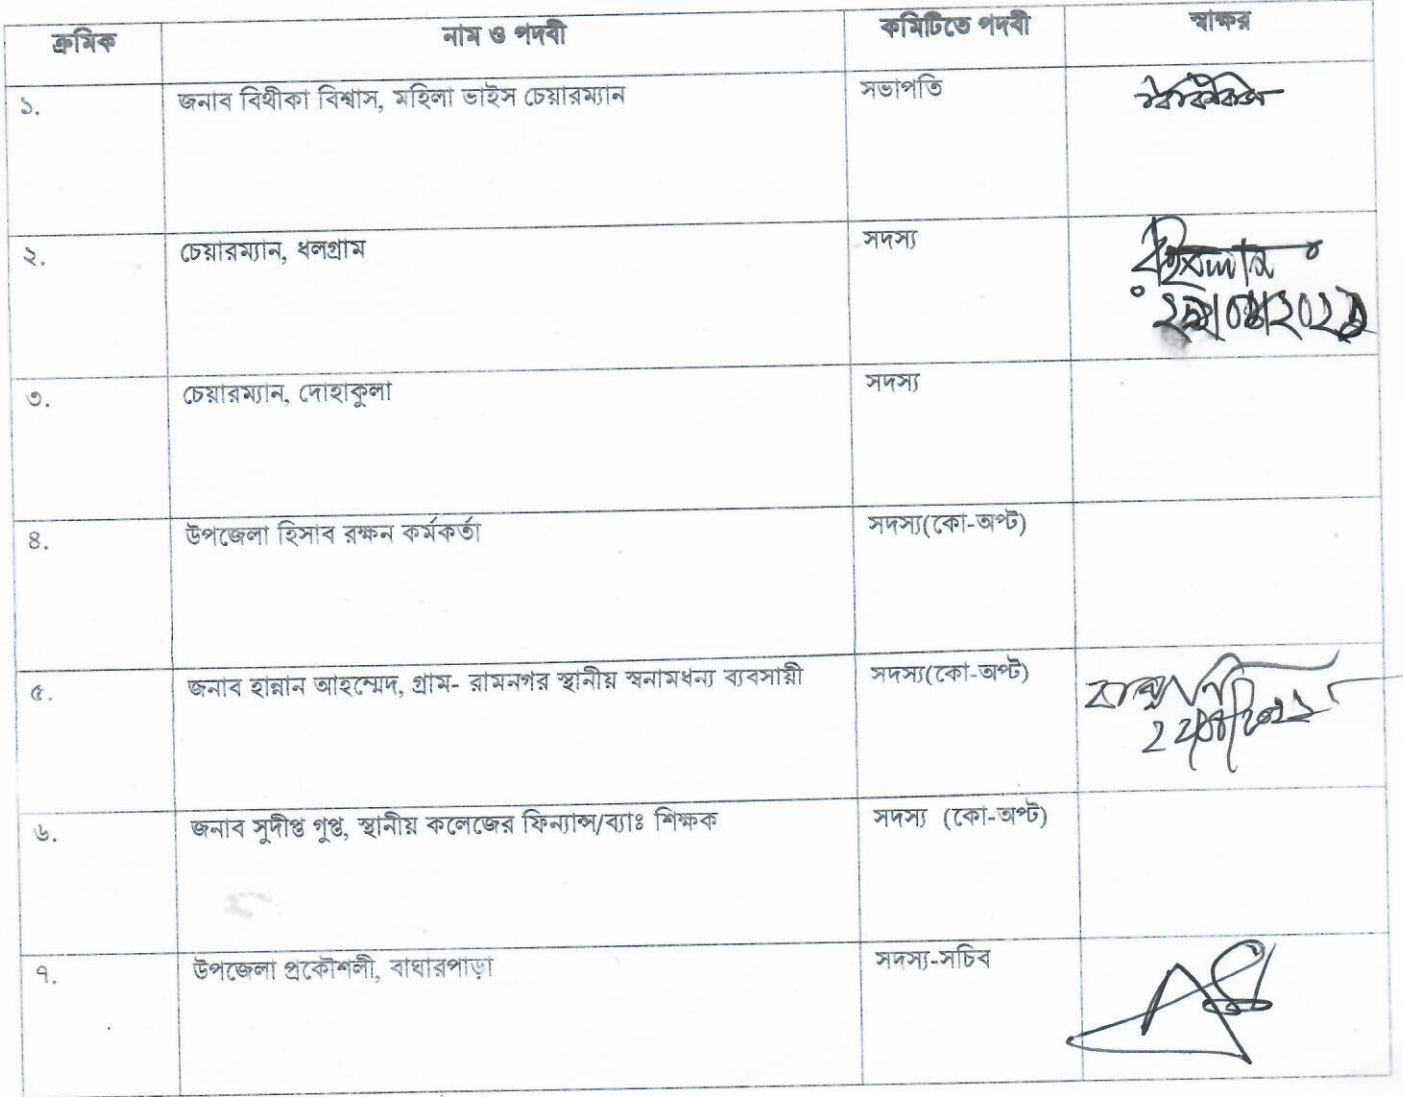 ক্রমিক নাম ও পদবী কমিটিতে পদবী স্বাক্ষর
১. জনাব বিথীকা বিশ্বাস, মহিলা ভাইস চেয়ারম্যান সভাপতি
২. চেয়ারম্যান, ধলগ্রাম সদস্য
৩. চেয়ারম্যান, দোহাকুলা সদস্য
৪. উপজেলা হিসাব রক্ষন কর্মকর্তা সদস্য(কো-অপ্ট)
৫. জনাব হান্নান আহম্মেদ, গ্রাম- রামনগর স্থানীয় স্বনামধন্য ব্যবসায়ী সদস্য(কো-অপ্ট)
৬. জনাব সুদীপ্ত গুপ্ত, স্থানীয় কলেজের ফিন্যান্স/ব্যাঃ শিক্ষক সদস্য (কো-অপ্ট)
৭. উপজেলা প্রকৌশলী, বাঘারপাড়া সদস্য-সচিব